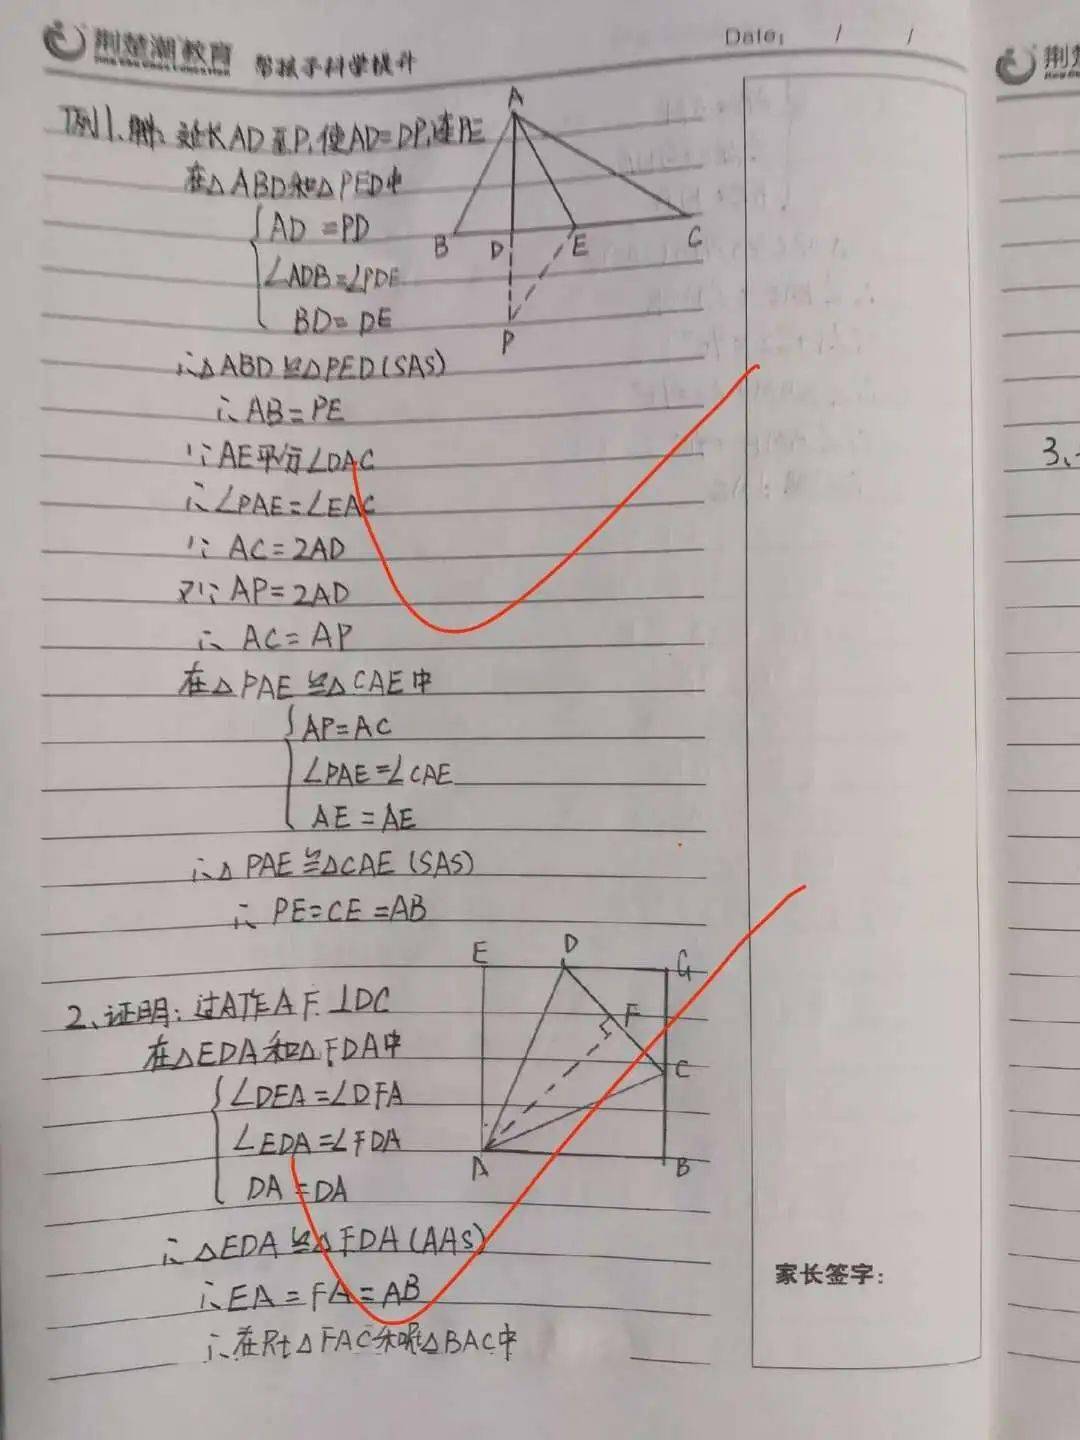 荆楚潮教育 帮孩子科学提升
Date: / /
荆楚
例1、解: 延长AD至P,使AD=DP,连PE
在△ABD和△PED中
AD=PD
∠ADB=∠PDE
BD=DE
∴△ABD≌△PED(SAS)
∴AB=PE
∵AE平分∠DAC
∴∠PAE=∠EAC
∵AC=2AD
又∵AP=2AD
∴AC=AP
在△PAE≌△CAE中
AP=AC
∠PAE=∠CAE
AE=AE
∴△PAE≌△CAE(SAS)
∴PE=CE=AB
A
B
D
E
C
P
2、证明:过A作AF⊥DC
在△EDA和△FDA中
∠DEA=∠DFA
∠EDA=∠FDA
DA=DA
∴△EDA≌△FDA(AAS)
∴EA=FA=AB
∴在Rt△FAC和Rt△BAC中
E
D
G
F
C
A
B
家长签字:
3、